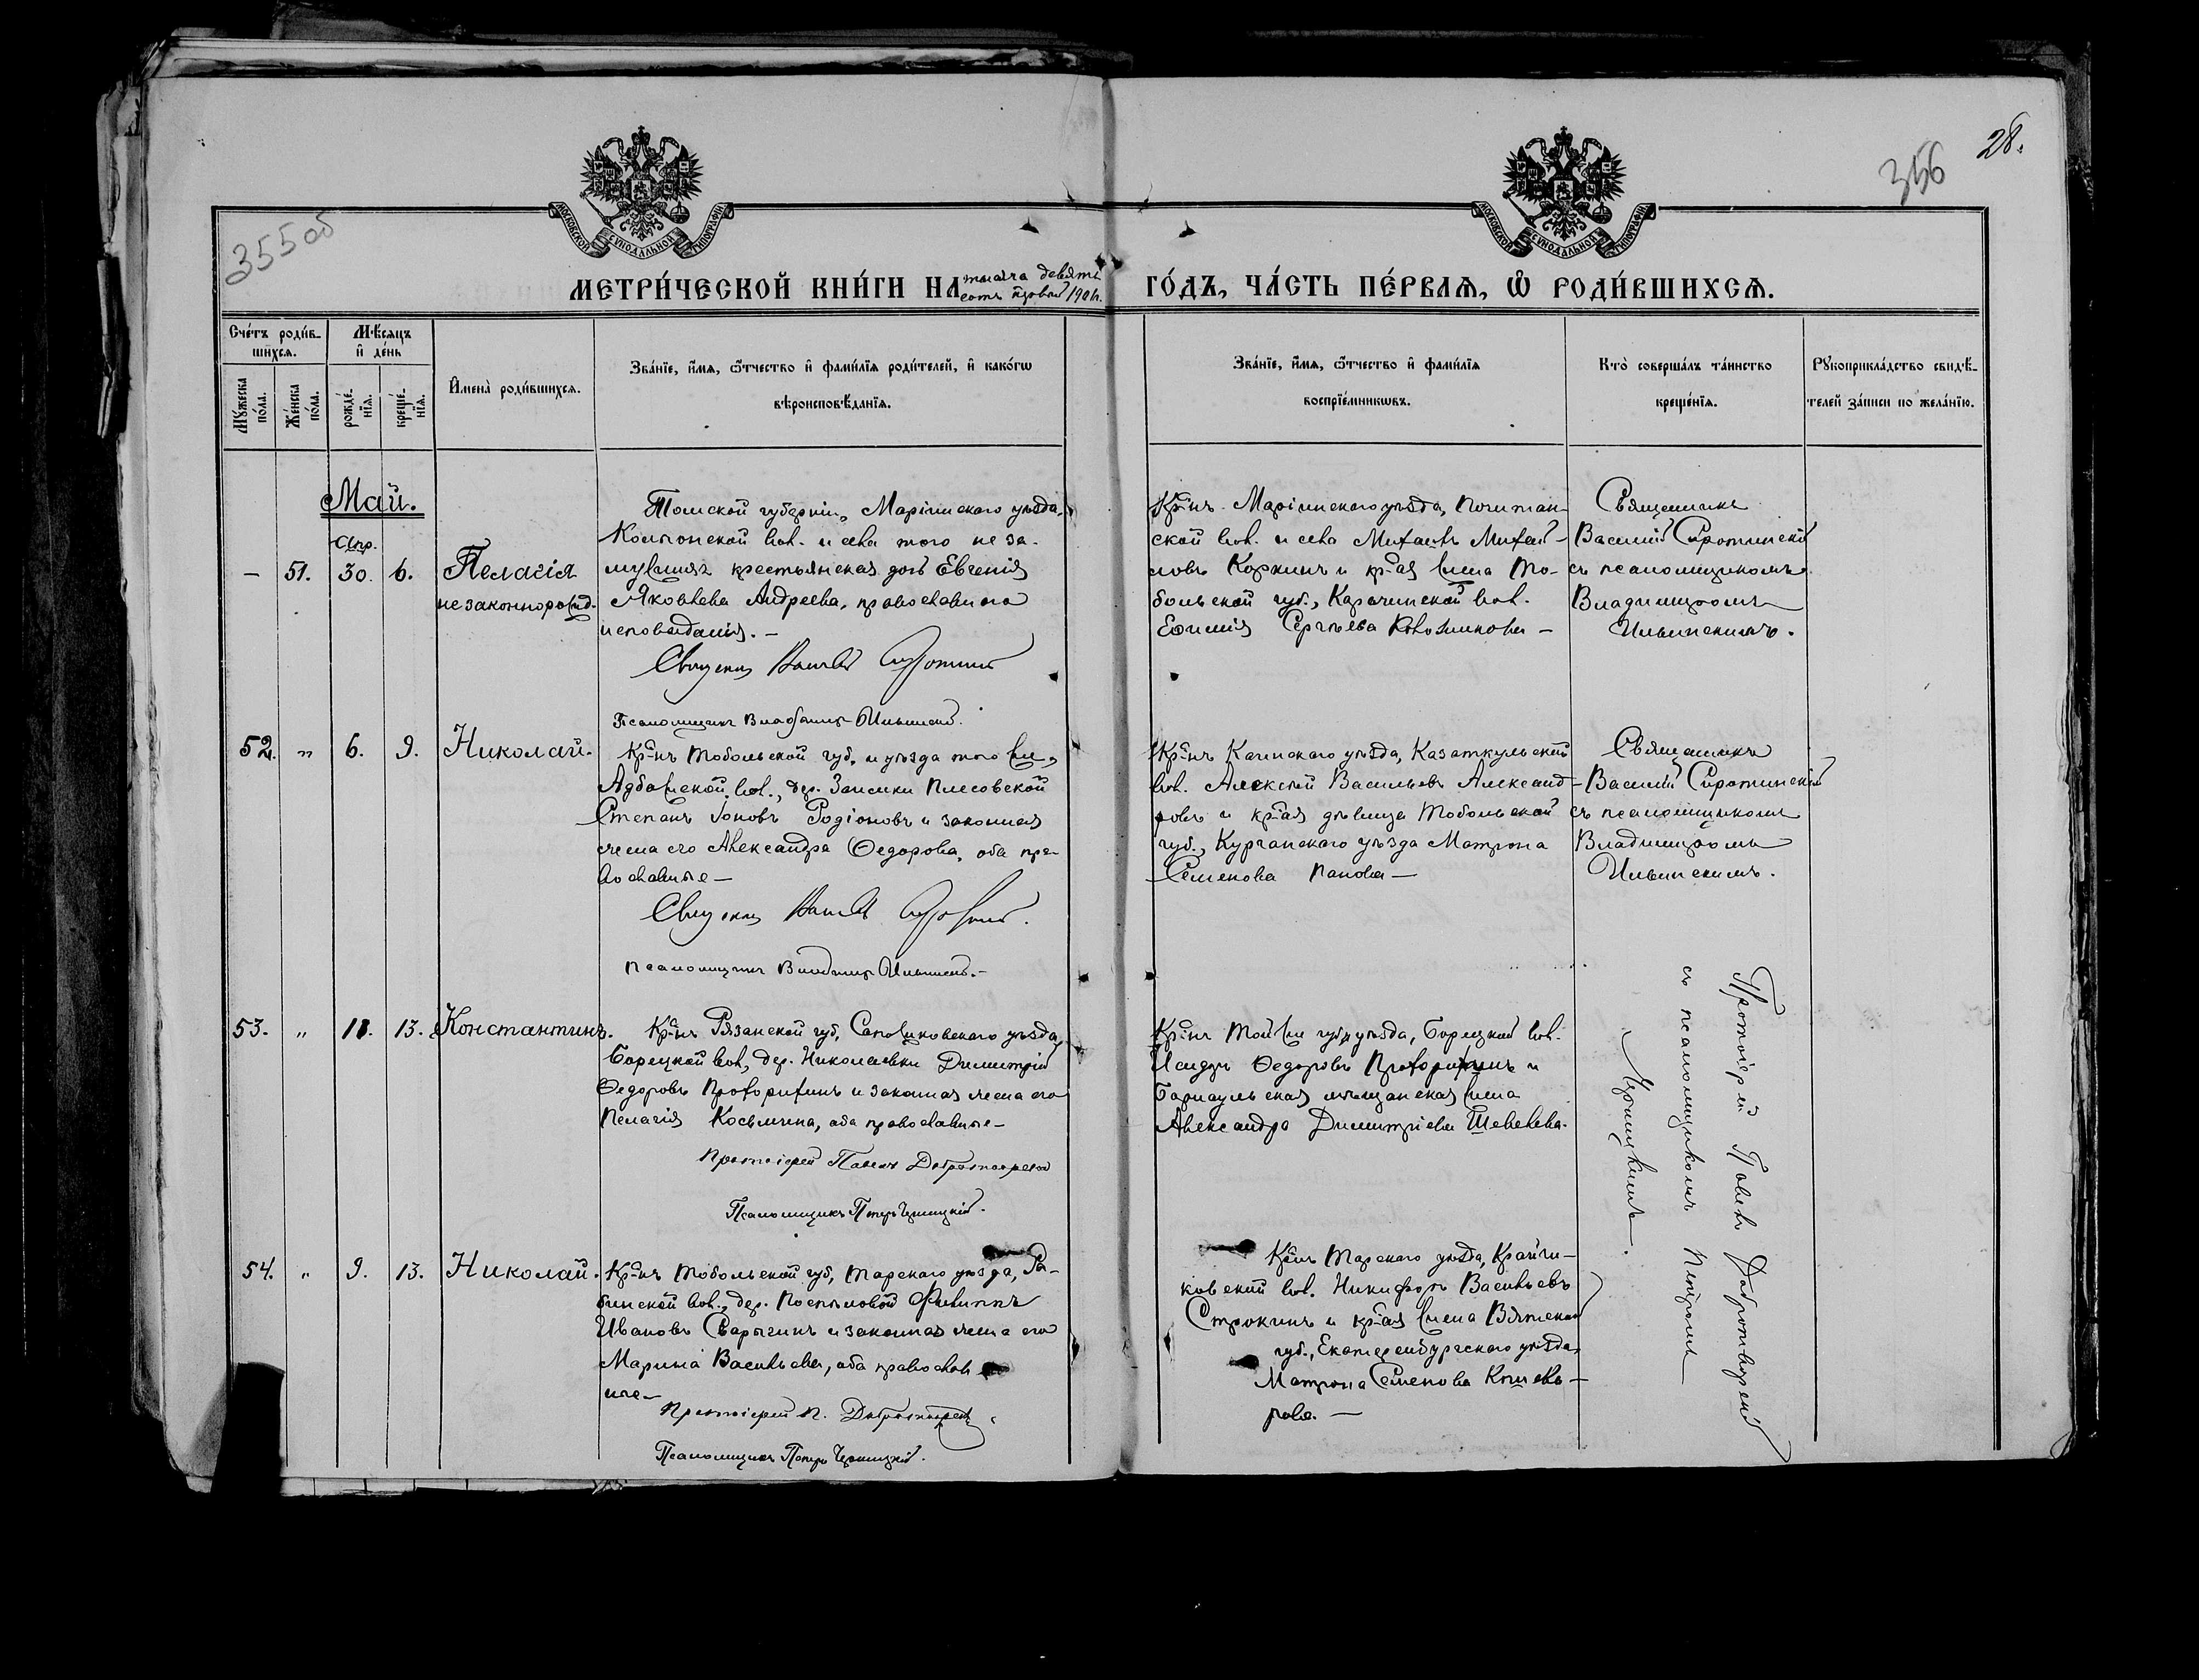 28.
356
355 об
МОСКОВСКОЙ СУНОДАЛЬНОЙ ТИПОГРАФІИ
МОСКОВСКОЙ СУНОДАЛЬНОЙ ТИПОГРАФІИ
МЕТРИ́ЧЕСКОЙ КНИ́ГИ НА тысяча девять
сотъ первый 1901 г. ГО́ДЪ, ЧА́СТЬ ПЕ́РВАѦ, Ѡ РОДИ́ВШИХСѦ.
Сче́тъ роди́в-
шихся.
Мѣ́сяцъ
и҆ де́нь
Мꙋ́жеска
по́ла.
Же́нска
по́ла.
рожде́-
нїѧ.
креще́-
нїѧ.
И҆мена̀ роди́вшихсѧ.
Зва́нїе, и҆́мѧ, ѻ҆́тчество и҆ фами́лїѧ роди́телей, и҆ како́гѡ
вѣроисповѣ́данїѧ.
Зва́нїе, и҆́мѧ, ѻ҆́тчество и҆ фами́лїѧ
воспрїе́мникѡвъ.
Кто̀ соверша́лъ та́инство
креще́нїѧ.
Рꙋкоприкла́дство свидѣ́-
телей за́писи по жела́нїю.
Май.
Апр.
— 51. 30. 6. Пелагія
незаконнорожд.
Томской губерніи, Маріинскаго уѣзда,
вол. и села того не за-
мужняя крестьянская дочь Евгенія
Яковлева Андреева, православнаго
исповѣданія. —
Священ Василій Сиротинск
Псаломщикъ Владимiръ Ильинскій.
Кр-нъ Маріинскаго уѣзда, Почитан-
ской вол. и села Михаилъ Михай-
ловъ Коркинъ и кр-ая жена То-
больской губ., Карачинской вол.
Евѳимія Сергѣева —
Священникъ
Василій Сиротинскій
съ псаломщикомъ
Владиміромъ
Ильинскимъ.
52. „ 6. 9. Николай.
Кр-нъ Тобольской губ. и уѣзда того же,
вол., дер. Заимки Плесовской
Степанъ Іоновъ Родіоновъ и законная
жена его Александра Ѳедорова, оба пра-
вославные —
Священ Василій Сиротинск.
Псаломщикъ Владимiръ Ильинскій. —
Кр-нъ Каинскаго уѣзда, Казаткульской
вол. Алексѣй Васильевъ Александ-
ровъ и кр-ая дѣвица Тобольской
губ., Курганскаго уѣзда Матрона
Семенова Панова —
Священникъ
Василій Сиротинскій
съ псаломщикомъ
Владиміромъ
Ильинскимъ.
53. „ 11. 13. Константинъ.
Кр-нъ Рязанской губ, Сапожковскаго уѣзда,
Борецкой вол, дер. Николаевки Димитрій
Ѳедоровъ Прохорихинъ и законная жена его
Пелагія Косьмина, оба православные —
Протоіерей Павелъ Добротворскій
Псаломщикъ Петръ Черницкій.
Кр-нъ Той же губ. и уѣзда, Борецкой вол.
Исидоръ Ѳедоровъ Прохорихинъ и
Барнаульская мѣщанская жена
Александра Димитріева Шевелева.
Протоіерей Павелъ Добротворскій
съ псаломщикомъ Петромъ
Черницкимъ.
54. „ 9. 13. Николай.
Кр-нъ Тобольской губ, Тарскаго уѣзда, Ры-
бинской вол., дер. Поспѣловой Филиппъ
Ивановъ Сварыгинъ и законная жена его
Марина Васильева, оба православ
ные —
Протоіерей П. Добротворск.
Псаломщикъ Петръ Черницкій.
Кр-нъ Тарскаго уѣзда, Крайчи-
ковской вол. Никифоръ Васильевъ
Строкинъ и кр-ая жена Вятской
губ., Екатеринбургскаго уѣзда
Матрона Семенова
рова. —